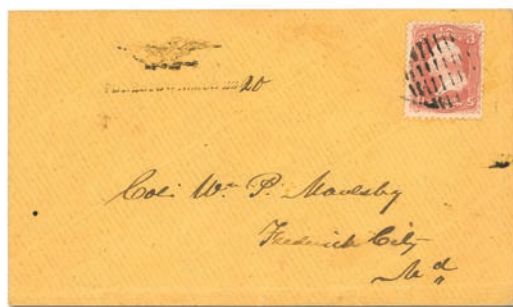 20
3
Col: Wm P. Maulsby
Frederick City
Md